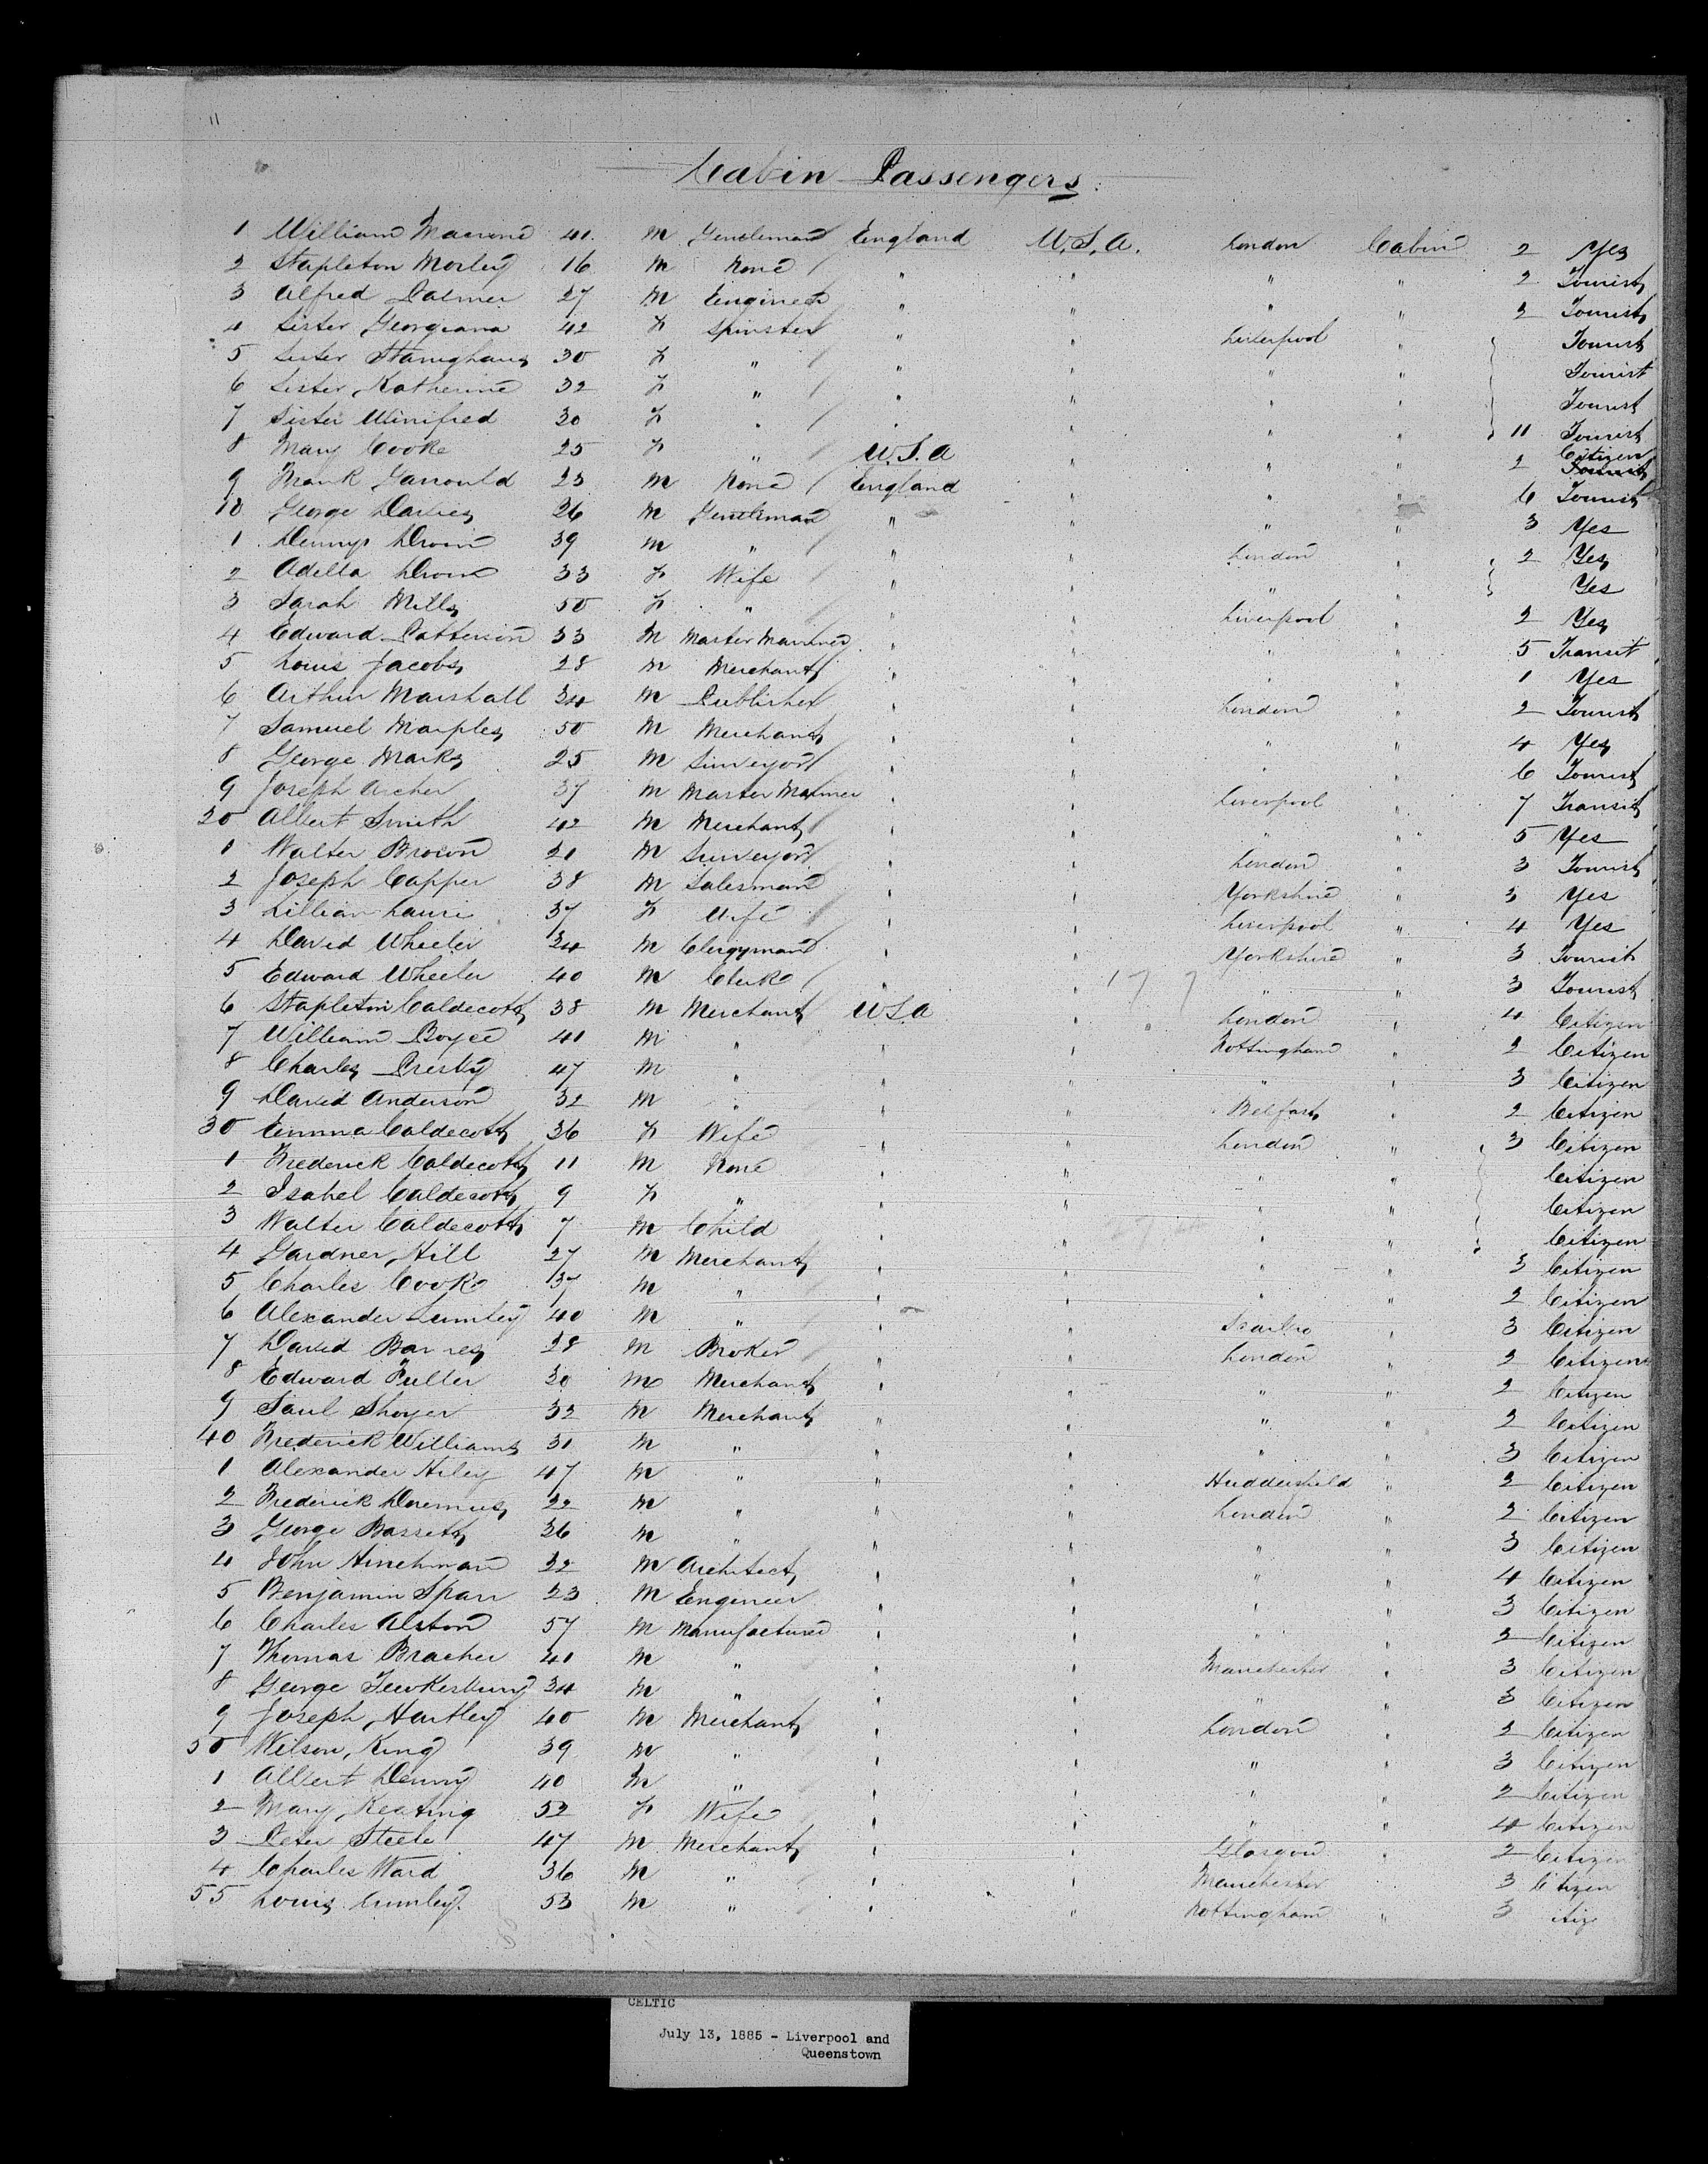 11
Cabin Passengers.
1 William 41 M Gentleman England U.S.A. London Cabin 2 Yes
2 Stapleton Morley 16 M None " " " " 2 Tourist
3 Alfred Palmer 27 M Engineer " " " " 2 Tourist
4 Sister Georgiana 42 F Spinster " " Liverpool " Tourist
5 Sister 30 F " " " " " Tourist
6 Sister Katherine 32 F " " " " " Tourist
7 Sister Winifred 30 F " " " " " 11 Tourist
8 Mary Cooke 25 F " U.S.A " " " 2 Citizen
9 Frank Garrould 23 M None England " " " 6 Tourist
10 George Davies 26 M Gentleman " " " " 3 Yes
1 Dennys 39 M " " " London " 2 Yes
2 Adella 33 F Wife " " " " Yes
3 Sarah Mills 50 F " " " Liverpool " 2 Yes
4 Edward Patterson 33 M Master Mariner " " " " 5 Transit
5 Louis Jacobs 28 M Merchant " " " " 1 Yes
6 Arthur Marshall 34 M Publisher " " London " 2 Tourist
7 Samuel Marples 50 M Merchant " " " " 4 Yes
8 George Marks 25 M Surveyor " " " " 6 Tourist
9 Joseph Archer 37 M Master Mariner " " Liverpool " 7 Transit
20 Albert Smith 42 M Merchant " " " " 5 Yes
1 Walter Brown 21 M Surveyor " " London " 3 Tourist
2 Joseph Capper 38 M Salesman " " Yorkshire " 3 Yes
3 Lillian Lauri 37 F Wife " " Liverpool " 4 Yes
4 David Wheeler 34 M Clergyman " " Yorkshire " 3 Tourist
5 Edward Wheeler 40 M Clerk " " " " 3 Tourist
6 Stapleton Caldecott 38 M Merchant U.S.A " London " 4 Citizen
7 William Boyce 41 M " " " Nottingham " 2 Citizen
8 Charles 47 M " " " " " 3 Citizen
9 David Anderson 32 M " " " Belfast " 2 Citizen
30 Emma Caldecott 36 F Wife " " London " 3 Citizen
1 Frederick Caldecott 11 M None " " " " Citizen
2 Isabel Caldecott 9 F " " " " " Citizen
3 Walter Caldecott 7 M Child " " " " Citizen
4 Gardner Hill 27 M Merchant " " " " 3 Citizen
5 Charles Cook 37 M " " " " " 2 Citizen
6 Alexander Lumley 40 M " " " " 3 Citizen
7 David Barnes 28 M Broker " " London " 2 Citizen
8 Edward Fuller 30 M Merchant " " " " 2 Citizen
9 Saul Shoyer 32 M Merchant " " " " 2 Citizen
40 Frederick Williams 31 M " " " " " 3 Citizen
1 Alexander Hiley 47 M " " " Huddersfield " 2 Citizen
2 Frederick Doremus 22 M " " " London " 2 Citizen
3 George Bassett 36 M " " " " " 3 Citizen
4 John Hinchman 22 M Architect " " " " 4 Citizen
5 Benjamin Sparr 23 M Engineer " " " " 3 Citizen
6 Charles Alston 57 M Manufacturer " " " " 2 Citizen
7 Thomas Bracher 41 M " " " Manchester " 3 Citizen
8 George Tewkesbury 34 M " " " " " 3 Citizen
9 Joseph Hartley 40 M Merchant " " London " 2 Citizen
50 Wilson King 39 M " " " " " 3 Citizen
1 Albert Denny 40 M " " " " " 2 Citizen
2 Mary Keating 52 F Wife " " " " 4 Citizen
3 Peter Steele 47 M Merchant " " Glasgow " 2 Citizen
4 Charles Ward 36 M " " " Manchester 3 Citizen
55 Louis Lumley 53 M " " " Nottingham " 3
CELTIC
July 13, 1885 - Liverpool and
Queenstown